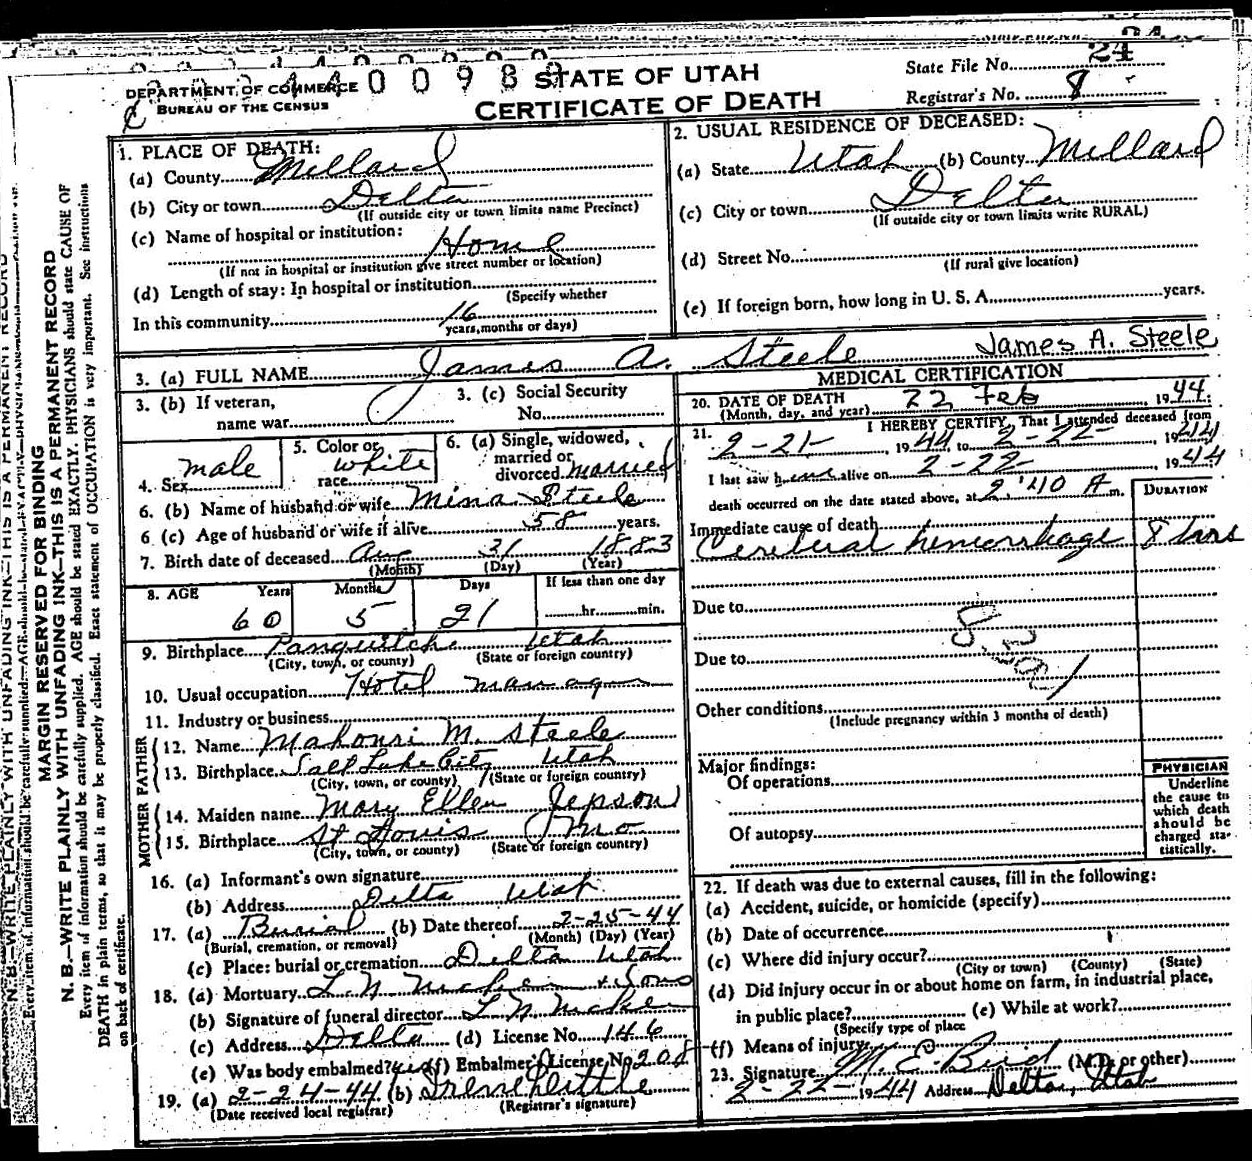 DEPARTMENT OF COMMERCE
BUREAU OF THE CENSUS
STATE OF UTAH
CERTIFICATE OF DEATH
State File No. 24
Registrar's No. 8
MARGIN RESERVED FOR BINDING
N. B.—WRITE PLAINLY WITH UNFADING INK—THIS IS A PERMANENT RECORD
Every item of information should be carefully supplied. AGE should be stated EXACTLY. PHYSICIANS should state CAUSE OF
DEATH in plain terms, so that it may be properly classified. Exact statement of OCCUPATION is very important. See instructions
on back of certificate.
1. PLACE OF DEATH:
(a) County Millard
(b) City or town Delta
(If outside city or town limits name Precinct)
(c) Name of hospital or institution:
Home
(If not in hospital or institution give street number or location)
(d) Length of stay: In hospital or institution
(Specify whether
In this community 16
years, months or days)
2. USUAL RESIDENCE OF DECEASED:
(a) State Utah (b) County Millard
(c) City or town Delta
(If outside city or town limits write RURAL)
(d) Street No.
(If rural give location)
(e) If foreign born, how long in U. S. A. years.
3. (a) FULL NAME James A. Steele James A. Steele
3. (b) If veteran,
name war
3. (c) Social Security
No.
4. Sex male
5. Color or race white
6. (a) Single, widowed, married or divorced married
6. (b) Name of husband or wife Mina Steele
6. (c) Age of husband or wife if alive 58 years.
7. Birth date of deceased Aug 31 1883
(Month) (Day) (Year)
8. AGE Years Months Days If less than one day
60 5 21 hr. min.
9. Birthplace Panguitch Utah
(City, town, or county) (State or foreign country)
10. Usual occupation Hotel manager
11. Industry or business
FATHER
12. Name Mahonri M. Steele
13. Birthplace Salt Lake City Utah
(City, town, or county) (State or foreign country)
MOTHER
14. Maiden name Mary Ellen Jepson
15. Birthplace St Louis Mo
(City, town, or county) (State or foreign country)
16. (a) Informant's own signature
(b) Address Delta Utah
17. (a) Burial (b) Date thereof 2-25-44
(Burial, cremation, or removal) (Month) (Day) (Year)
(c) Place: burial or cremation Delta Utah
18. (a) Mortuary L N & Sons
(b) Signature of funeral director L N
(c) Address Delta (d) License No. 146
(e) Was body embalmed? yes (f) Embalmer's License No. 208
19. (a) 2-24-44 (b) Irene
(Date received local registrar) (Registrar's signature)
MEDICAL CERTIFICATION
20. DATE OF DEATH 22 Feb, 1944
(Month, day, and year)
21. I HEREBY CERTIFY, That I attended deceased from
2-21- 1944 to 2-22- 1944
I last saw h alive on 2-22- 1944
death occurred on the date stated above, at 2:40 A m.
DURATION
Immediate cause of death
Cerebral hemorrhage 8 hrs
Due to
Due to
Other conditions
(Include pregnancy within 3 months of death)
Major findings:
Of operations
Of autopsy
PHYSICIAN
Underline
the cause to
which death
should be
charged sta-
tistically.
22. If death was due to external causes, fill in the following:
(a) Accident, suicide, or homicide (specify)
(b) Date of occurrence
(c) Where did injury occur?
(City or town) (County) (State)
(d) Did injury occur in or about home on farm, in industrial place,
in public place? (e) While at work?
(Specify type of place
(f) Means of injury
23. Signature M. E. Bird (M. D. or other)
2-22-1944 Address Delta, Utah